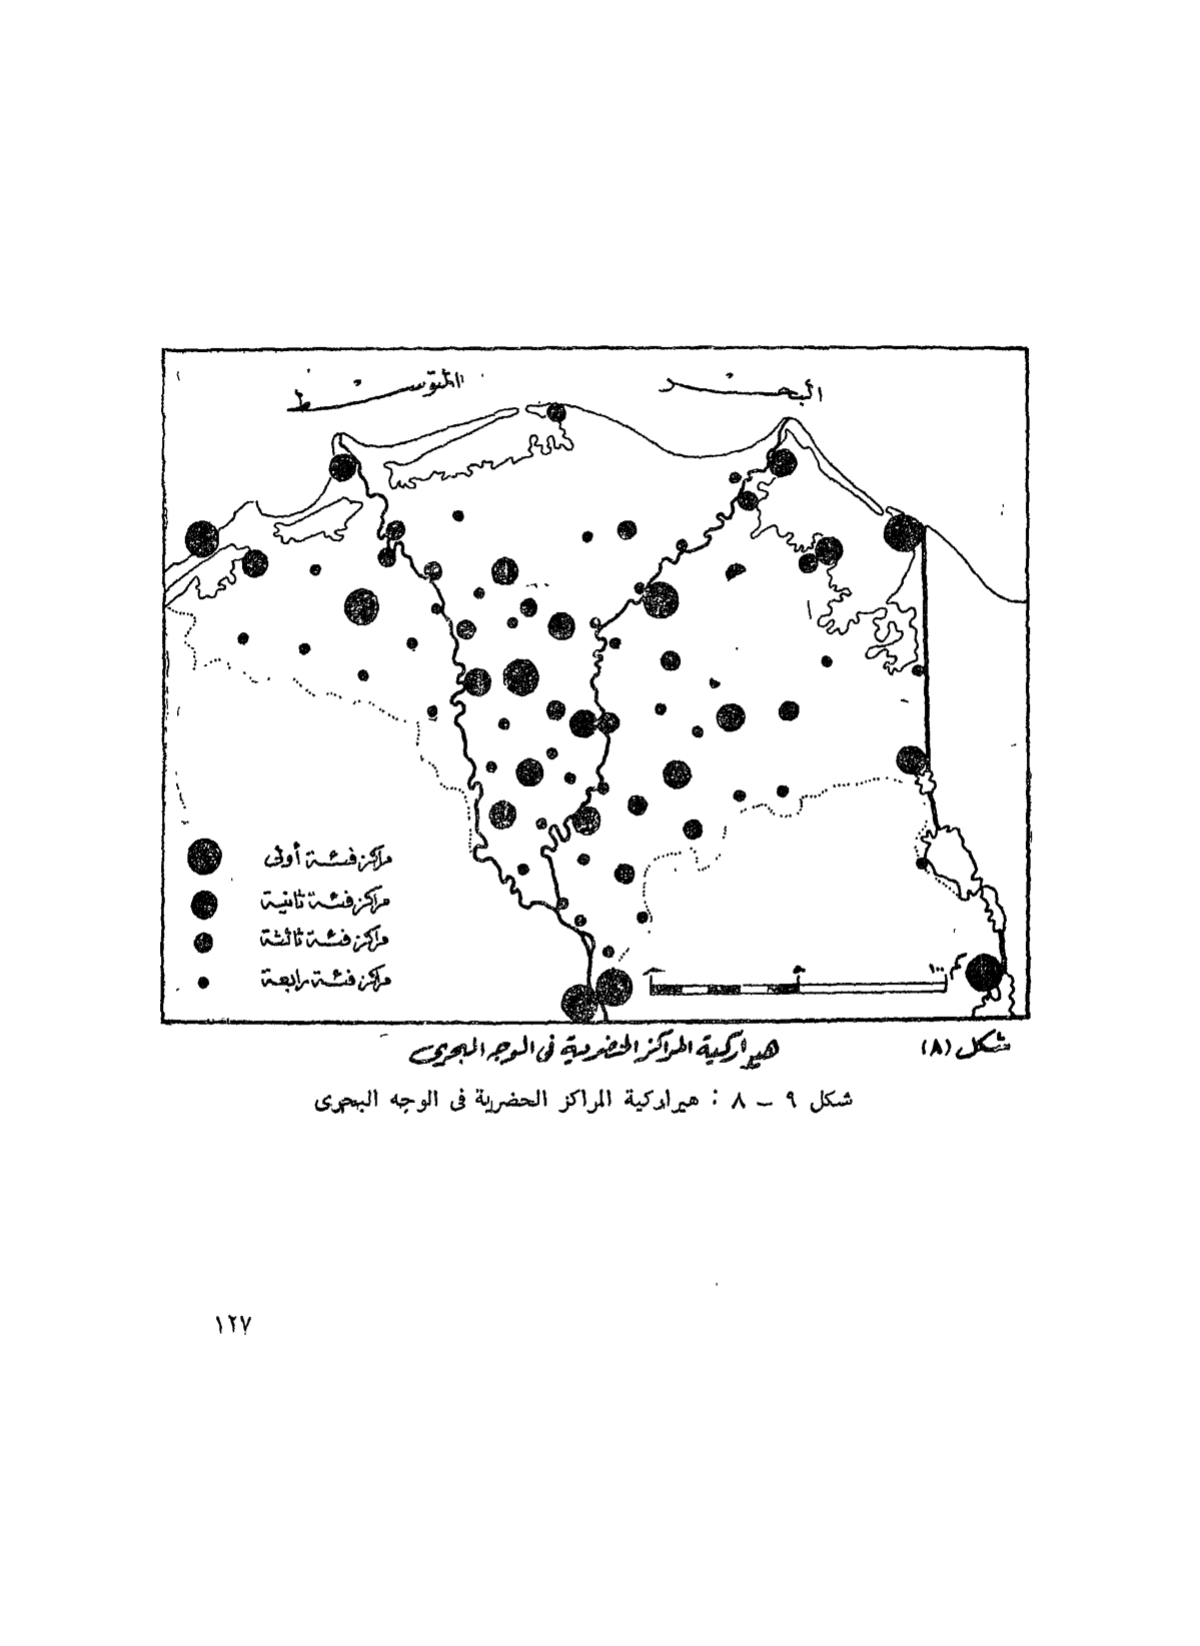 البحر المتوسط
مراكز فئة أولى
مراكز فئة ثانية
مراكز فئة ثالثة
مراكز فئة رابعة
٥٠ ١٠٠ كم
شكل (٨) هيراركية المراكز الحضرية فى الوجه البحرى
شكل ٩ – ٨ : هيراركية المراكز الحضرية فى الوجه البحرى
١٢٧